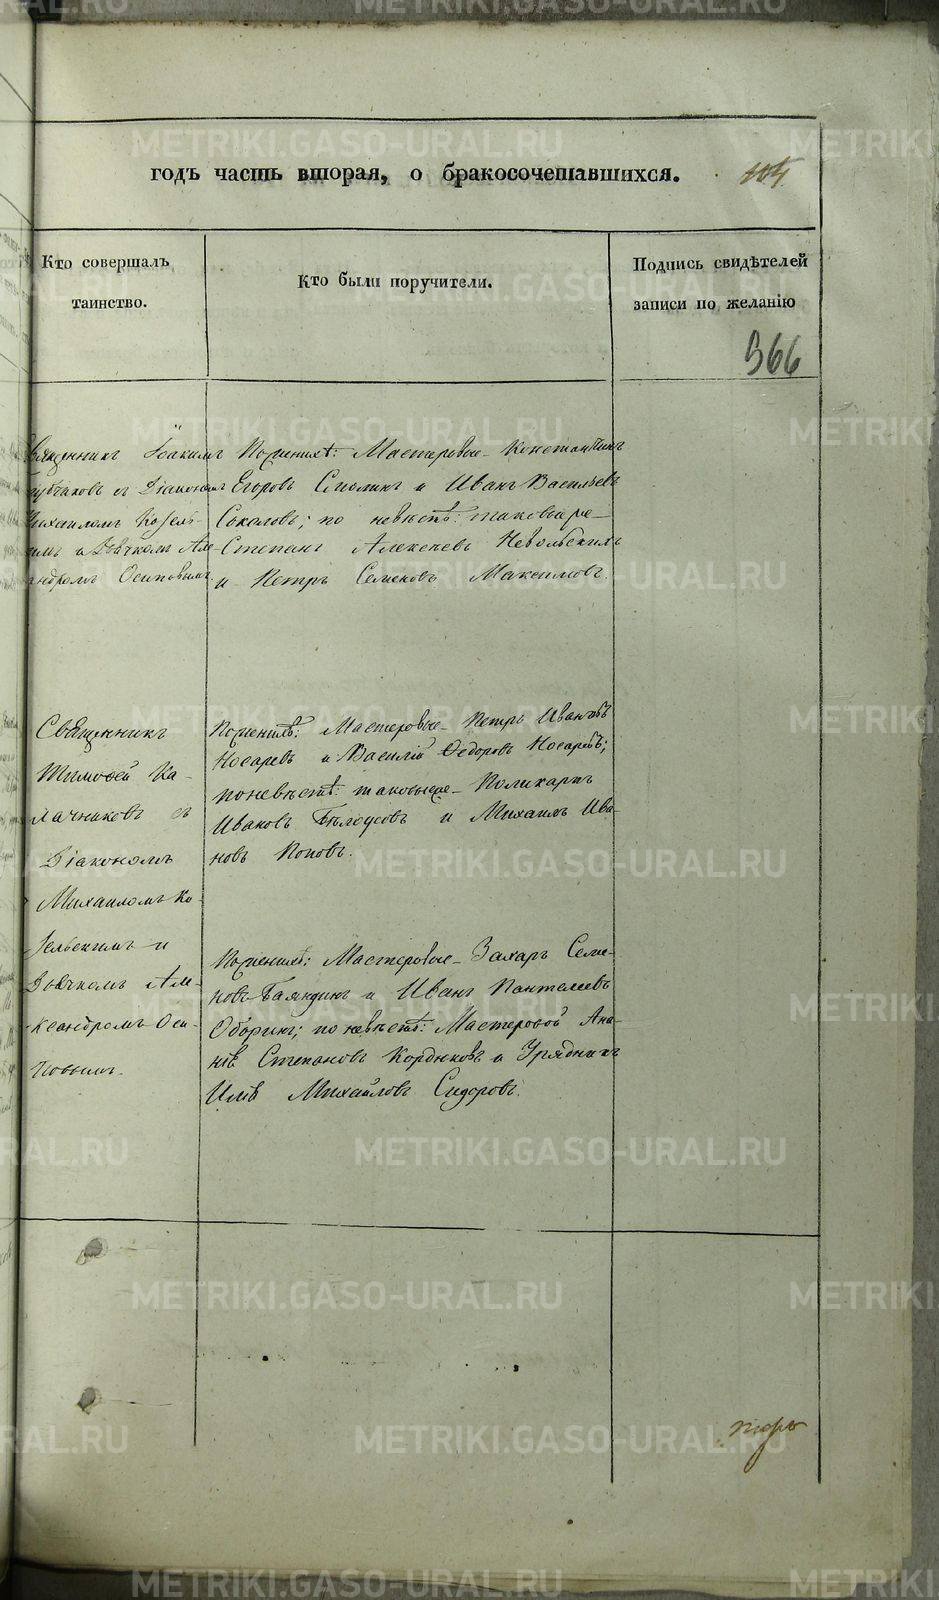 годъ часть вторая, о бракосочетавшихся.
104
Кто совершалъ
таинство.
Кто были поручители.
Подпись свидѣтелей
записи по желанію
366
Священникъ Іоакимъ
съ Діакономъ
Михаиломъ Козель-
скимъ и Дьячкомъ Але-
ксандромъ Осиповымъ
По женихѣ: Мастеровые Константинъ
Егоровъ Смолинъ и Иванъ Васильевъ
Соколовъ; по невѣстѣ: таковые же
Степанъ Алексѣевъ Невольскихъ
и Петръ Семеновъ Максимовъ.
Священникъ
Тимофей Ка-
лачниковъ съ
Діакономъ
Михаиломъ Ко-
зельскимъ и
Дьячкомъ Але-
ксандромъ Оси-
повымъ.
По женихѣ: Мастеровые Петръ Ивановъ
Носаревъ и Василій Ѳедоровъ Носаревъ;
по невѣстѣ: таковые же Поликарпъ
Ивановъ Бѣлоусовъ и Михаилъ Ива-
новъ Поповъ.
По женихѣ: Мастеровые Захаръ Семе-
новъ Баяндинъ и Иванъ Пантелеевъ
Оборинъ; по невѣстѣ: Мастеровой Ана-
нія Степановъ Кордюковъ и Урядникъ
Илія Михайловъ Сидоровъ.
METRIKI.GASO-URAL.RU